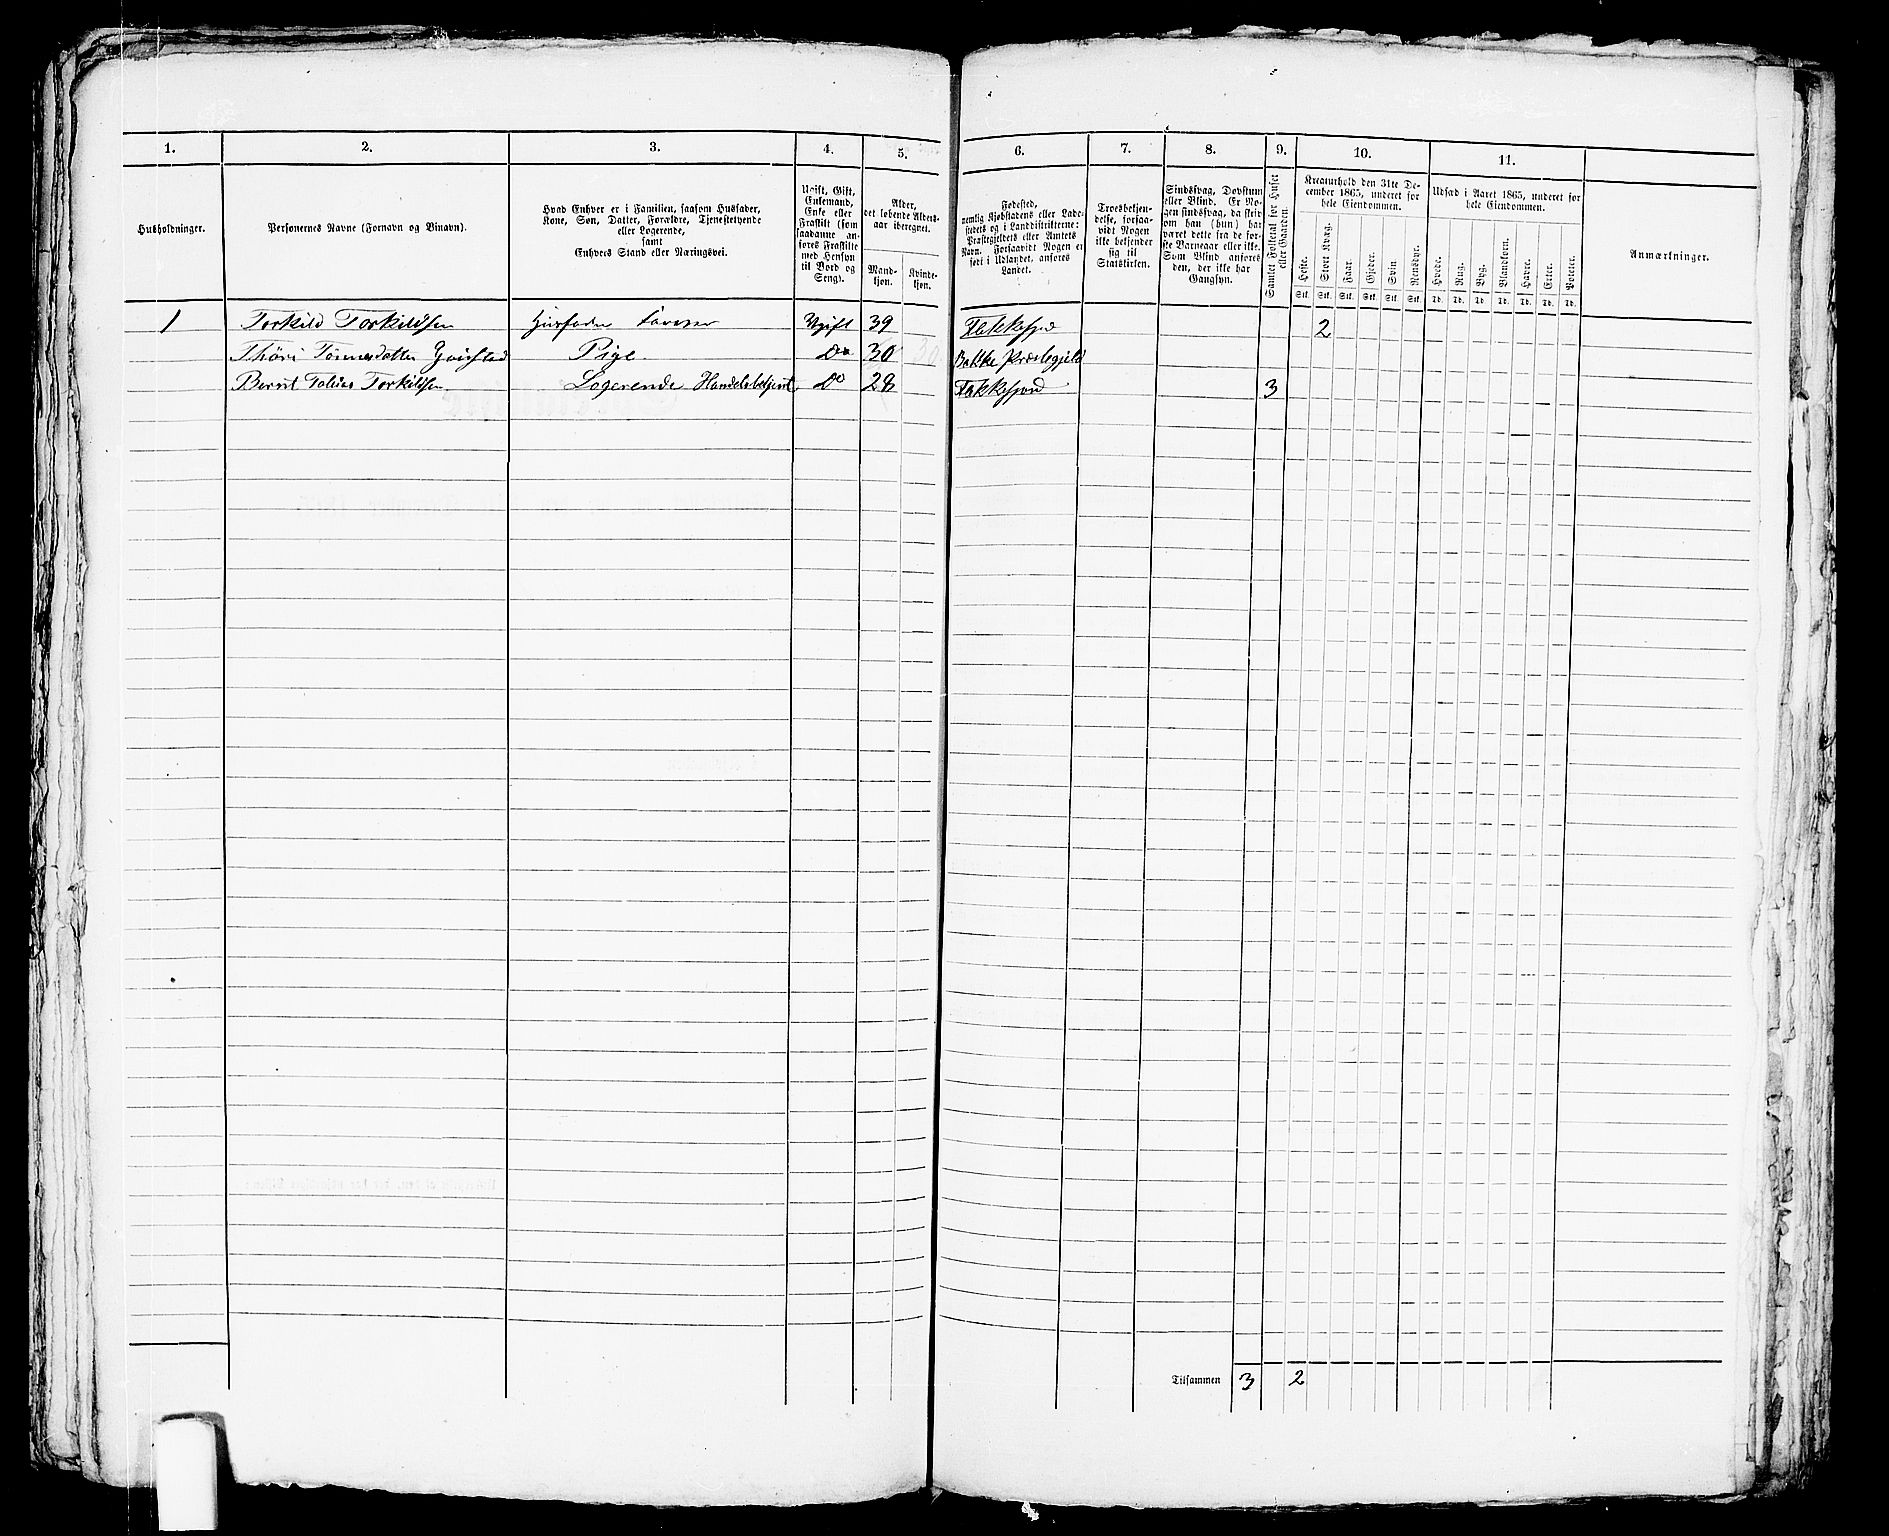 1. 2. 3. 4. 5. 6. 7. 8. 9. 10. 11.
Husholdninger.
Personernes Navne (Fornavn og Binavn).
Hvad Enhver er i Familien, saasom Husfader,
Kone, Søn, Datter, Forældre, Tjenestetyende
eller Logerende,
samt
Enhvers Stand eller Næringsvei.
Ugift, Gift,
Enkemand,
Enke eller
Fraskilt (som
saadanne an-
føres Fraskilte
med Hensyn
til Bord og
Seng).
Alder,
det løbende Alders-
aar iberegnet.
Mand-
kjøn.
Kvinde-
kjøn.
Fødested,
nemlig Kjøbstadens eller Lade-
stedets og i Landdistrikterne:
Præstegjeldets eller Amtets
Navn. Forsaavidt Nogen er
født i Udlandet, anføres
Landet.
Troesbekjen-
delse, forsaa-
vidt Nogen
ikke bekjender
sig til
Statskirken.
Sindssvag, Døvstum
eller Blind. Er No-
gen sindssvag, da skriv
om han (hun) har
været dette fra de før-
ste Barneaar eller ikke.
Som Blind anføres
den, der ikke har
Gangsyn.
Samlet Folketal for Huset
eller Gaarden.
Kreaturhold den 31te De-
cember 1865, underet for
hele Eiendommen.
Heste. Stort Kvæg. Faar. Gjeder. Svin. Rensdyr.
Stk. Stk. Stk. Stk. Stk. Stk.
Udsæd i Aaret 1865, underet for
hele Eiendommen.
Hvede. Rug. Byg. Blandkorn. Havre. Erter. Poteter.
Td. Td. Td. Td. Td. Td. Td.
Anmærkninger.
1 Torkild Torkildsen Husfader Ugift 39 Flekkefjord 2
Tønnesdatter Pige Do 30 Bakke Præstegjeld
Bernt Tobias Torkildsen Logerende Handelsbetjent Do 28 Flekkefjord 3
Tilsammen 3 2